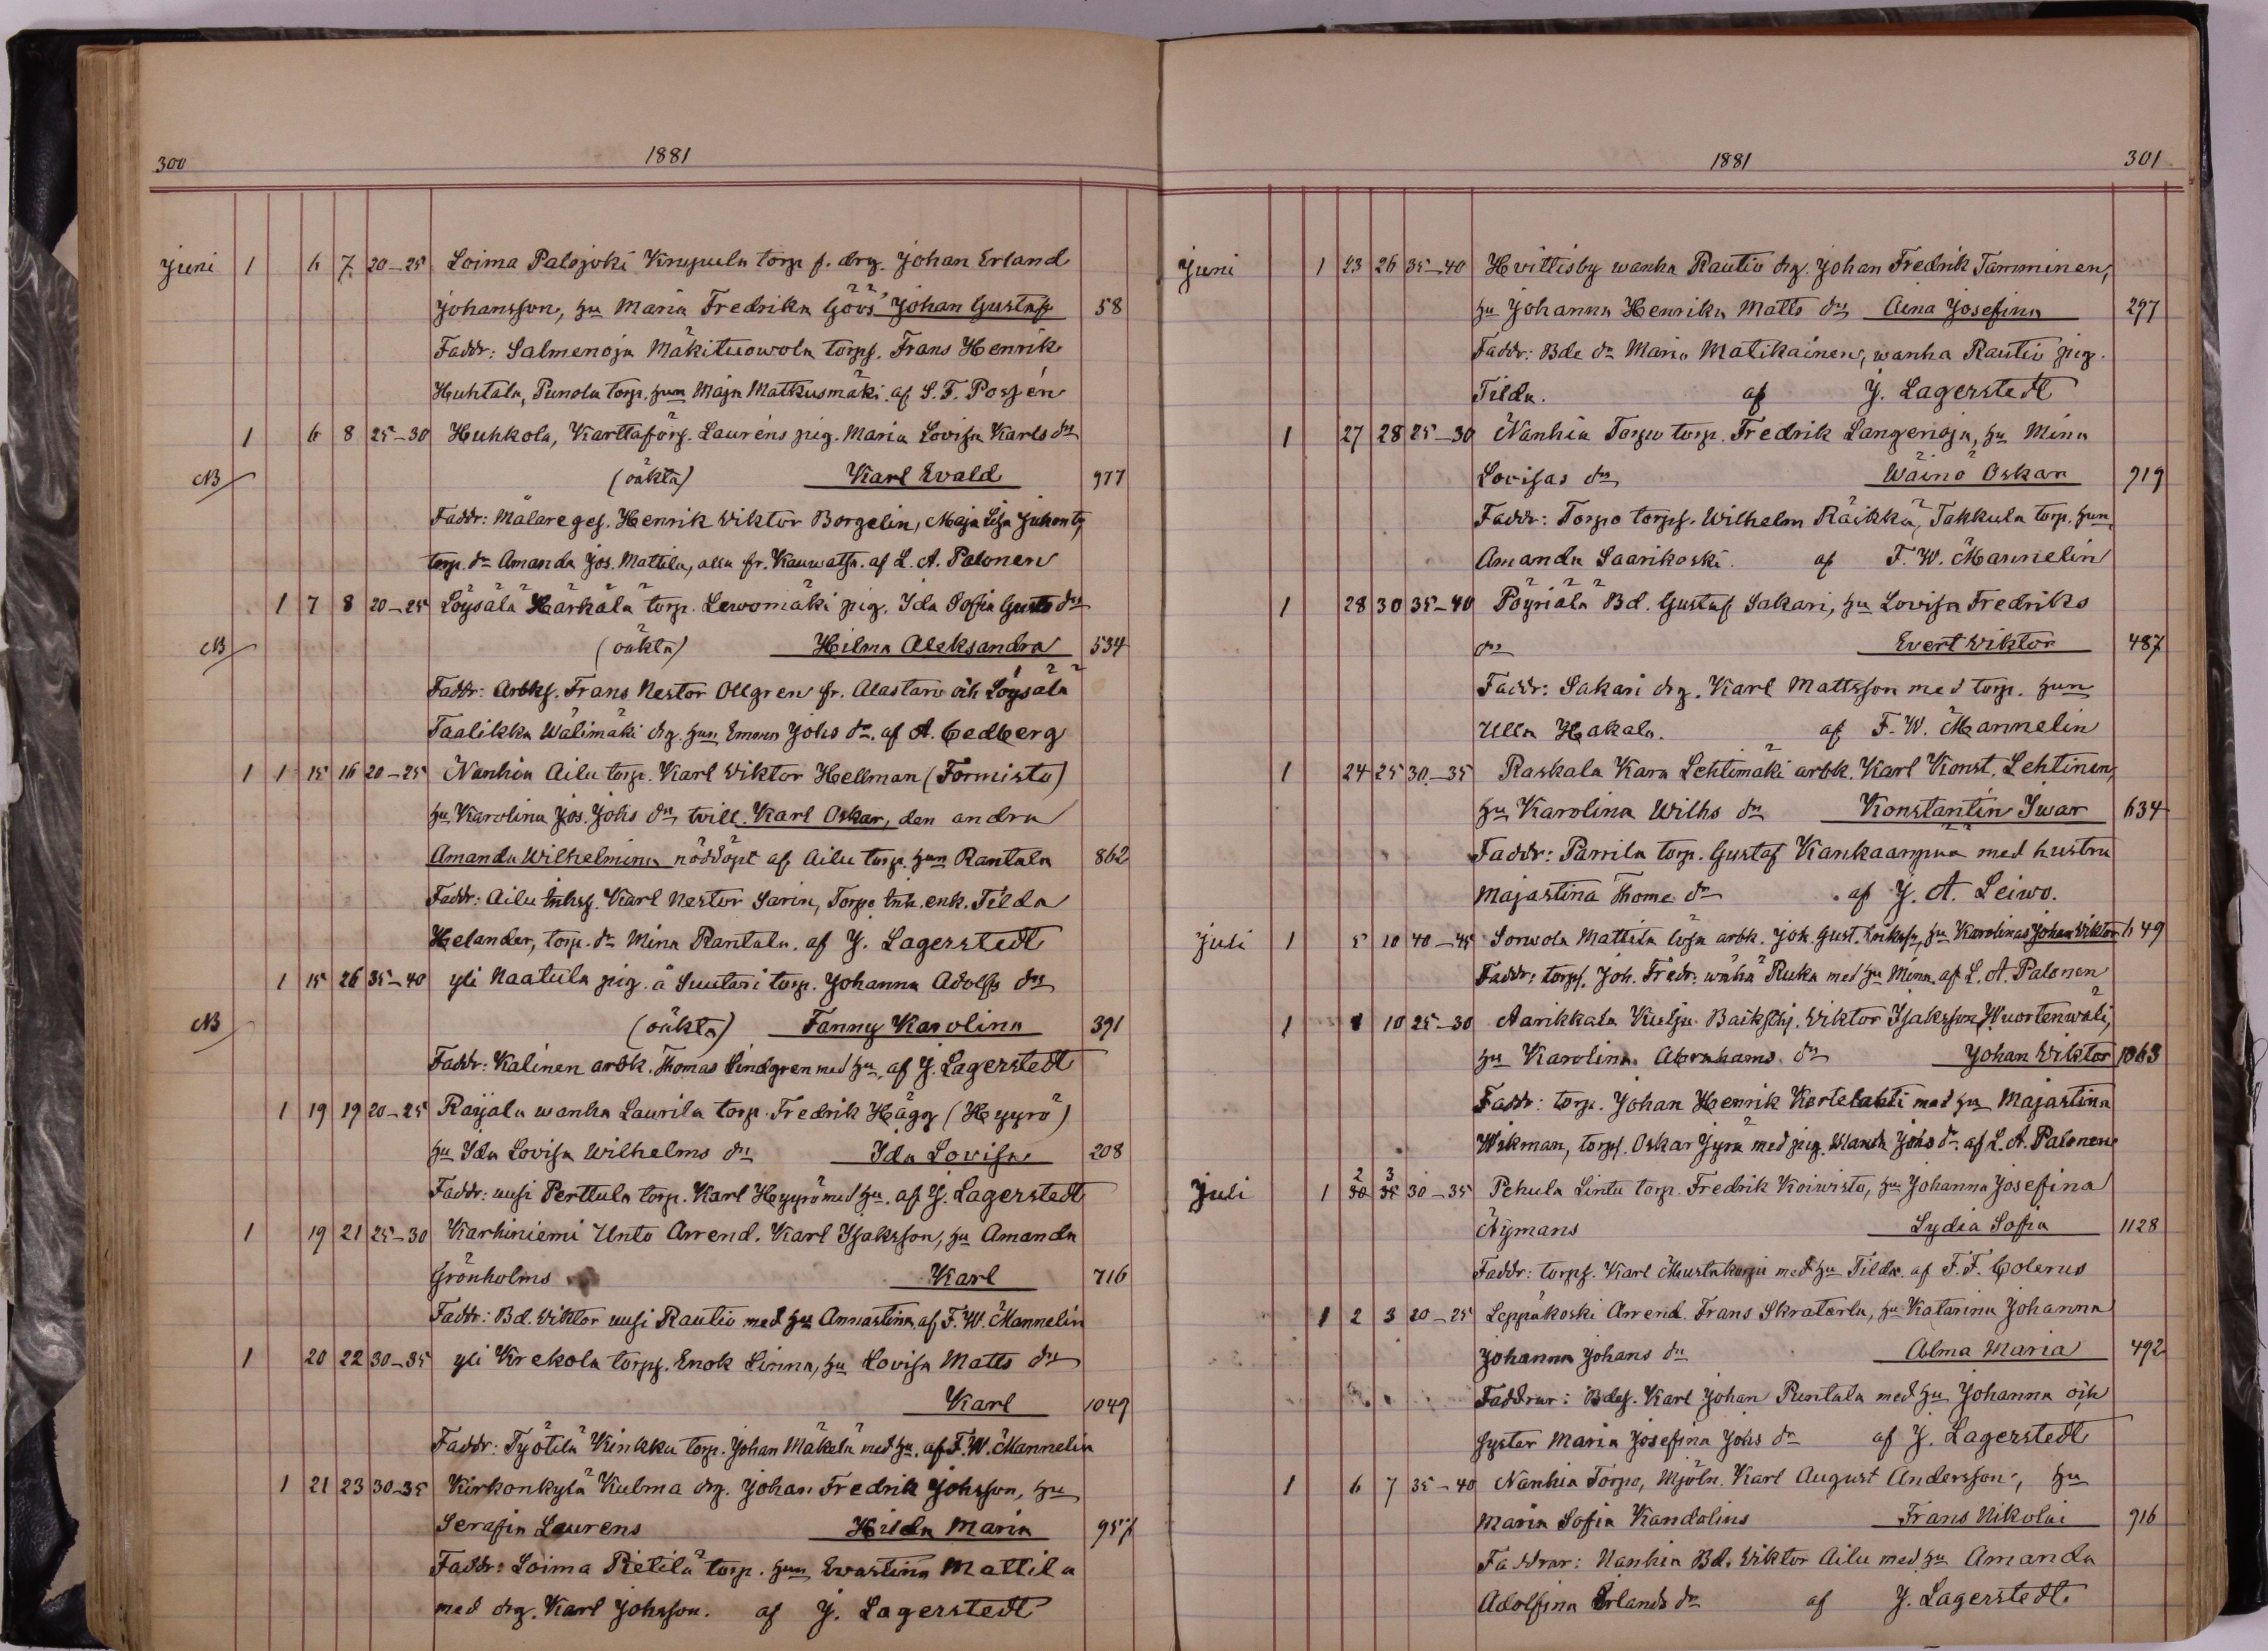 300 1881
Juni 1 6 7 20–25 Loima Palojoki Knupula torp f. drg. Johan Erland
Johansson, hu Maria Fredrika Göös Johan Gustaf 58
Faddr: Salmenoja Mäkituowola torpf. Frans Henrik
Huhtala, Punola torp. hun Maja Matkusmäki. af S. F. Posén
1 6 8 25–30 Huhkola, Karttaförs. Lauréns pig. Maria Lovisa Karls dr
NB (oäkta) Karl Evald 977
Faddr: Målareges. Henrik Viktor Borgelin, Maja Lisa
torp. dr Amanda Jos. Mattila, alla fr. Kauwatsa. af L. A. Palonen
1 7 8 20–25 Löysälä Härkälä torp. Lewomäki pig. Ida Sofia Gusts dr
NB (oäkta) Hilma Aleksandra 534
Faddr: Arbks. Frans Nestor Ollgren fr. Alastaro och Löysälä
Taalikka Wälimäki drg. hun Emma Johs dr. af A. Cedberg
1 1 15 16 20–25 Nanhia Ailu torp. Karl Viktor Hellman (Formisto)
hu Karolina Jos. Johs dr, till. Karl Oskar, den andra
Amanda Wilhelmina nöddöpt af Ailu torp. hun Rantala 862
Faddr: Ailu inhsg. Karl Nestor Sarin, Torpo inh. enk. Tilda
Helander, torp. dr Mina Rantala. af J. Lagerstedt
1 15 26 35–40 yli Naatula pig. å Suutari torp. Johanna Adolfs dr
NB (oäkta) Fanny Karolina 391
Faddr: Kalinen arbk. Thomas Lindgren med hu, af J. Lagerstedt
1 19 19 20–25 Raijala wanha Laurila torp. Fredrik Hägg (Hyyrö)
hu Ida Lovisa Wilhelms dr Ida Lovisa 208
Faddr: uusi Perttula torp. Karl Hyyrö med hu. af J. Lagerstedt
1 19 21 25–30 Karhiniemi Unto Arrend. Karl Isaksson, hu Amanda
Grönholms Karl 716
Faddr: Bd. Viktor uusi Rautio med hu Annastina. af F. W. Mannelin
1 20 22 30–35 yli Krekola torpf. Enok Linna, hu Lovisa Matts dr
Karl 1049
Faddr: Työtilä Kinkku torp. Johan Mäkelä med hu. af F. W. Mannelin
1 21 23 30–35 Kirkonkylä Kulma drg. Johan Fredrik Johsson, hu
Serafia Laurens Hilda Maria 957
Faddr: Loima Pietilä torp. hun Evastina Mattila
med drg. Karl Johsson. af J. Lagerstedt
1881 301
Juni 1 23 26 35–40 Hvittisby wanha Rautio drg. Johan Fredrik Tamminen,
hu Johanna Henrika Matts dr Aina Josefina 297
Faddr: Bde dr Maria Matikainen, wanha Rautio pig.
Tilda. af J. Lagerstedt
1 27 28 25–30 Nanhia Torpo torp. Fredrik Langenoja, hu Mina
Lovisas dr Wäinö Oskar 919
Faddr: Torpo torpf. Wilhelm Räikkä, Takkula torp. hun
Amanda Saarikoski. af F. W. Mannelin
1 28 30 35–40 Pöyriälä Bd. Gustaf Sakari, hu Lovisa Fredriks
dr Evert Viktor 487
Faddr: Sakari drg. Karl Mattsson med torp. hun
Ulla Hakala. af F. W. Mannelin
1 24 25 30–35 Raskala Kara Lehtimäki arbk. Karl Konst. Lehtinen,
hu Karolina Wilhs dr Konstantin Iwar 634
Faddr: Parrila torp. Gustaf Kankaanpää med hustru
Majastina Thome dr af J. A. Leiwo.
Juli 1 5 10 40–45 Sorwola Mattila lösa arbk. Joh. Gust. Erikss, hu Karolinas Johan Viktor 1149
Faddr: torpf. Joh. Fredr. wähä Ruka med hu Mina. af L. A. Palonen
1 10 25–30 Aarikkala Kulju Viktor Isaksson Wuortenwäli,
hu Karolina Abrahams dr Johan Viktor 1063
Faddr: torp. Johan Henrik Kortelahti med hu Majastina
Wikman, torpf. Oskar Jyrä med pig. Wanda Johs dr. af L. A. Palonen
2 3
Juli 1 30 35 30–35 Pehula Lintu torp. Fredrik Koiwisto, hu Johanna Josefina
Nymans Lydia Sofia 1128
Faddr: torpf. Karl Mustakorpi med hu Tilda. af F. F. Colerus
1 2 3 20–25 Leppäkoski Arrend. Frans Skratarla, hu Katarina Johanna
Johanna Johans dr Alma Maria 492
Faddrar: Bdes. Karl Johan Puntala med hu Johanna och
syster Maria Josefina Johs dr af J. Lagerstedt
1 6 7 35–40 Nanhia Torpo, Mjöln. Karl August Andersson, hu
Maria Sofia Kandolins Frans Nikolai 916
Faddrar: Nanhia Bd. Viktor Ailu med hu Amanda
Adolfina Erlands dr af J. Lagerstedt.